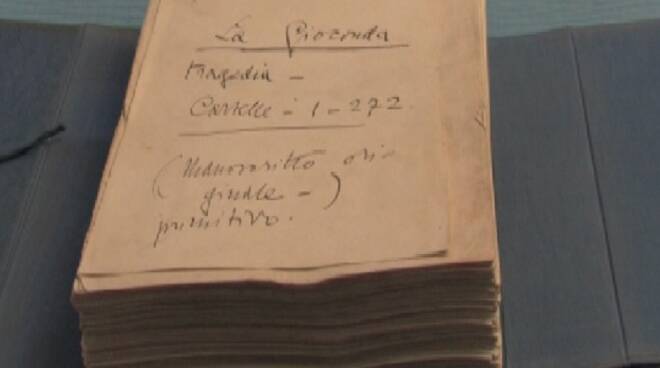 La Gioconda
tragedia -
Cartelle - 1 - 272.
(Manoscritto ori-
ginale - )
primitivo.